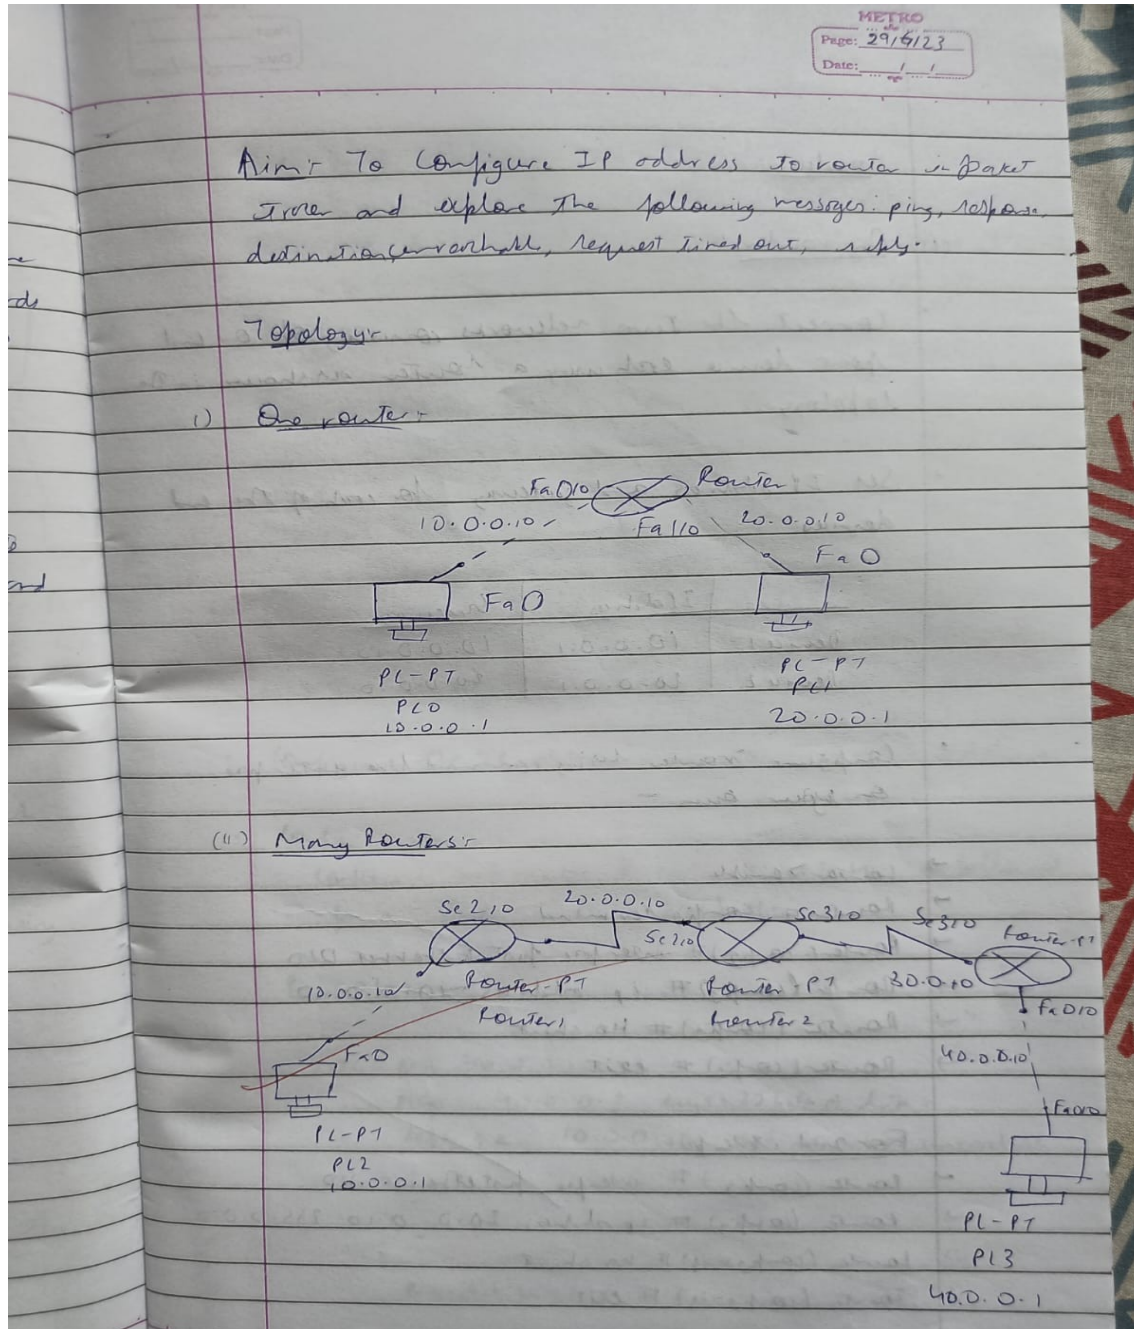 METRO
Page: 29/6/23
Date: / /
Aim:- To Configure IP address to router in paket
Tracer and explore the following messages: ping, response,
destination unreachable, request timed out, reply.
Topology:-
i) One router:-
Fa0/0 Router
10.0.0.10 Fa1/0 20.0.0.10
Fa0
Fa0
PC-PT PC-PT
PC0 PC1
10.0.0.1 20.0.0.1
(ii) Many Routers:-
Se2/0 20.0.0.10 Se3/0 Se3/0 Router-PT
Se2/0
10.0.0.10 Router-PT Router-PT 30.0.0.10
Router1 Router2 Fa0/0
Fa0 40.0.0.10
Fa0/0
PC-PT
PC2
10.0.0.1
PC-PT
PC3
40.0.0.1